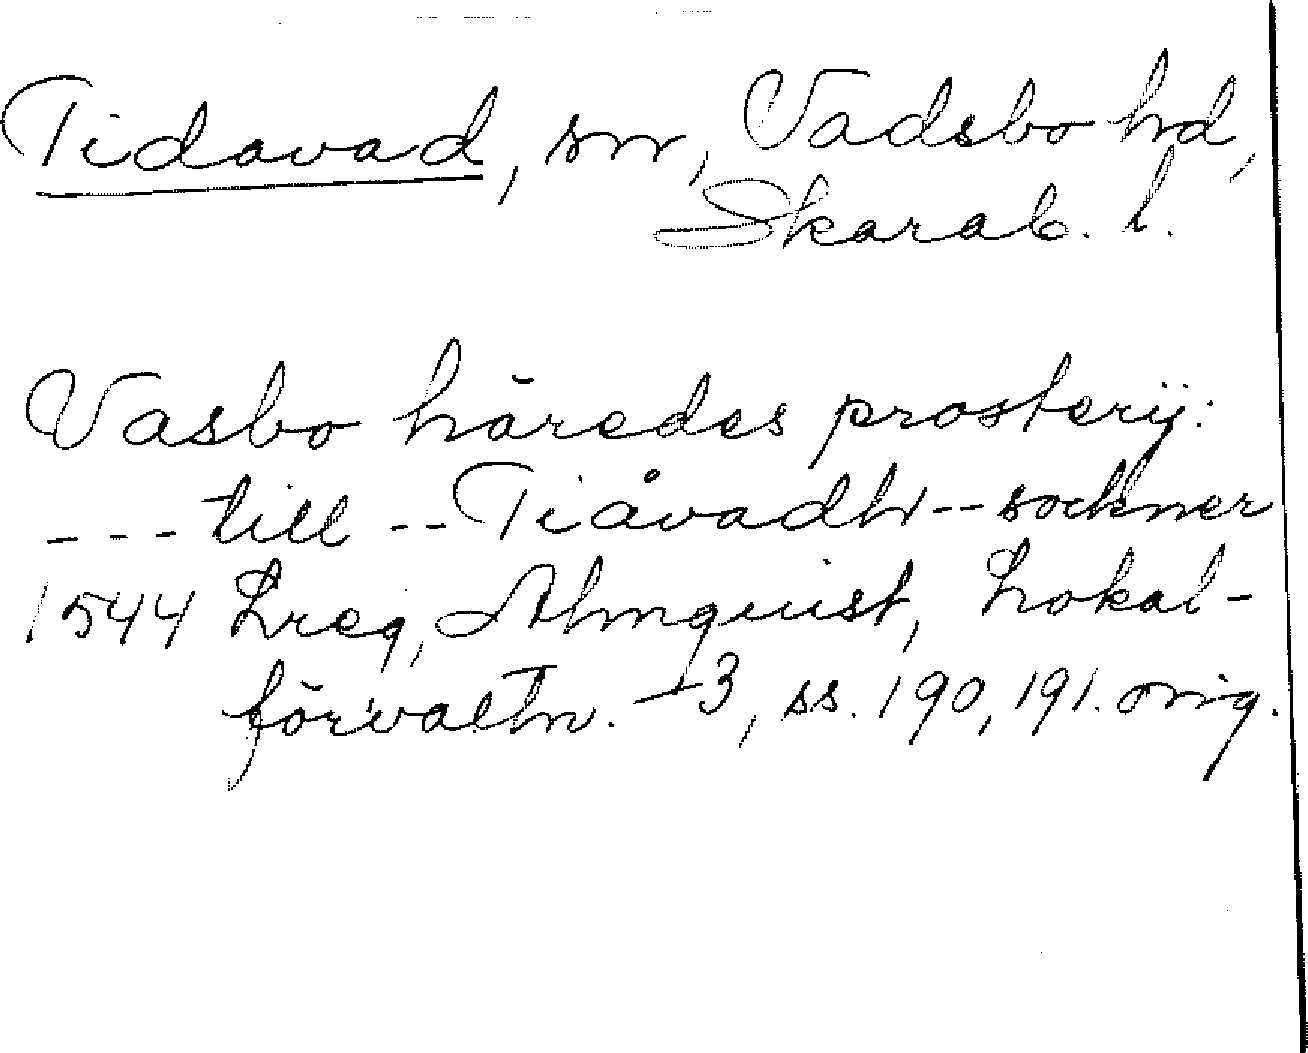 Tidavad, sn, Vadsbo hd,
Skarab. l.
Vasbo häredes prosterÿ:
--- till -- Tiåvadh -- sockner
1544 Lreg, Almquist, Lokal-
förvaltn. 3, ss. 190, 191. orig.